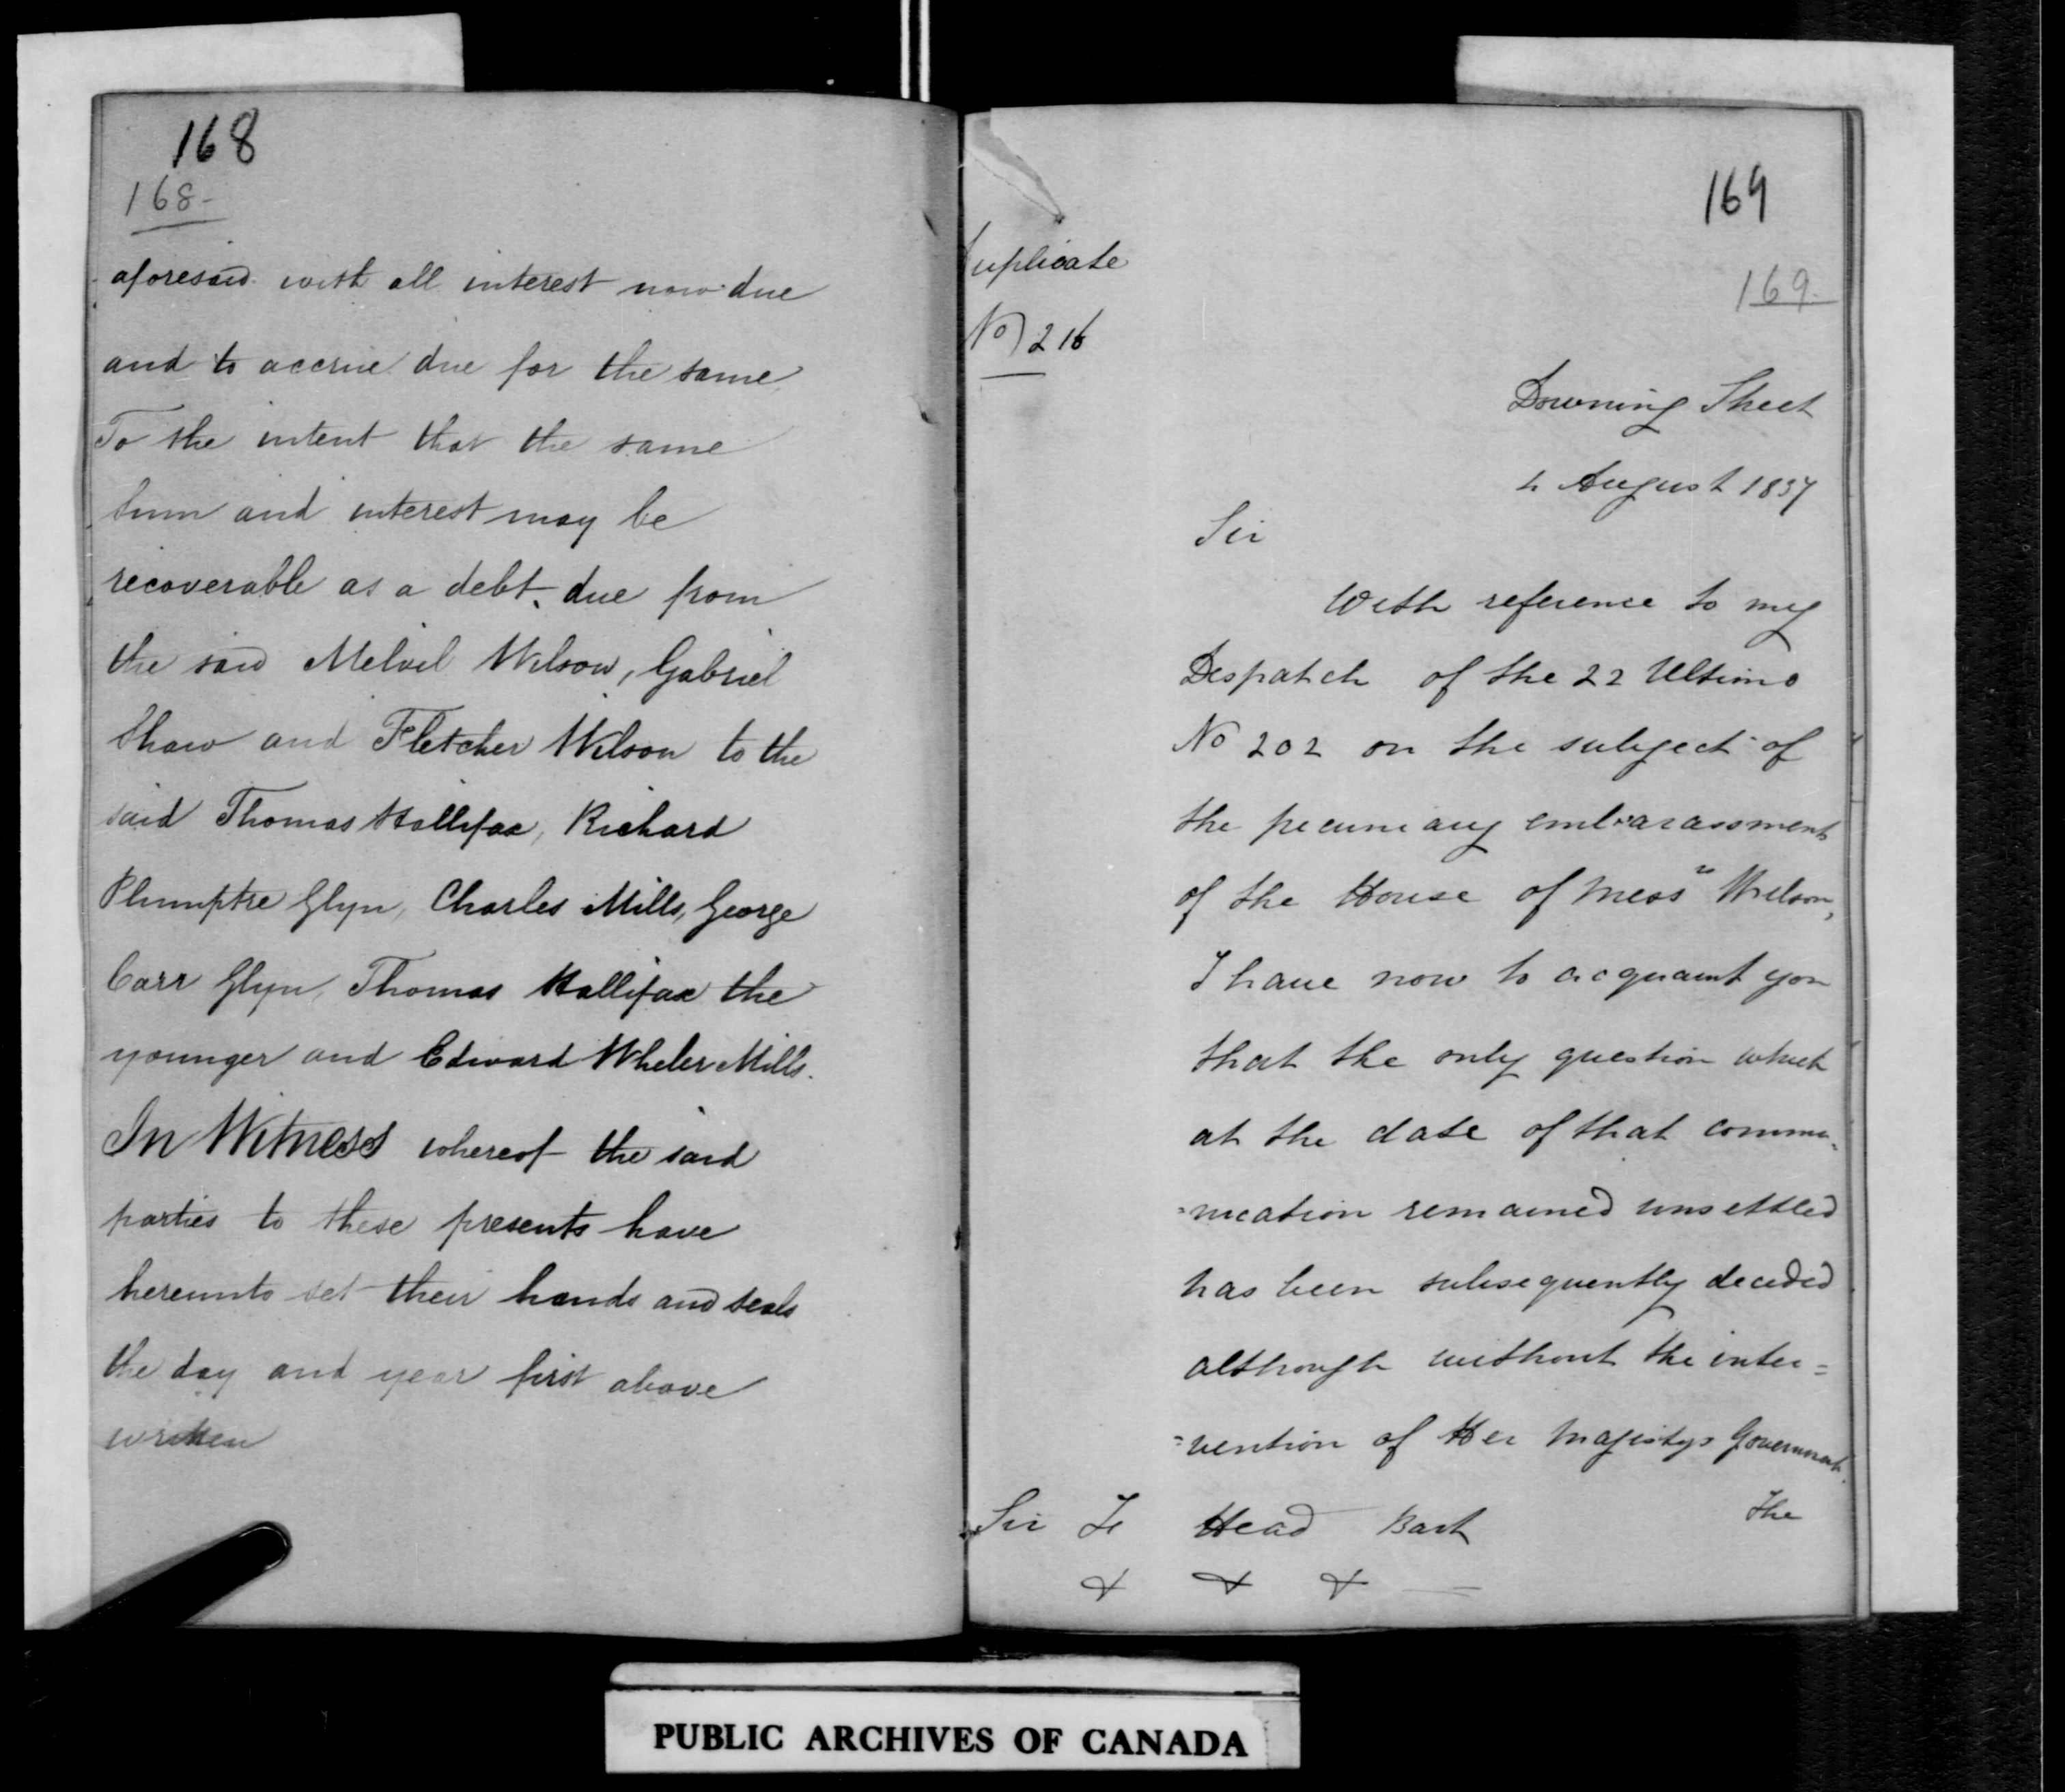 168
168-
aforesaid with all interest now due
and to accrue due for the same
To the intent that the same
Sum and interest may be
recoverable as a debt due from
the said Melvil Wilson, Gabriel
Shaw and Fletcher Wilson to the
said Thomas Hallifax, Richard
Plumptre Glyn, Charles Mills, George
Carr Glyn, Thomas Hallifax the
younger and Edward Wheler Mills.
In Witness whereof the said
parties to these presents have
hereunto set their hands and seals
the day and year first above
written
169
169.
uplicate
No 216
Downing Street
4 August 1837
Sir
With reference to my
Despatch of the 22 Ultimo
No 202 on the subject of
the pecuniary embarassment
of the House of Messrs Wilson,
I have now to acquaint you
that the only question which
at the date of that commu-
=nication remained unsettled
has been subsequently decided
although without the inter=
=vention of Her Majestys Government.
The
Sir F Head Bart
& & &
PUBLIC ARCHIVES OF CANADA